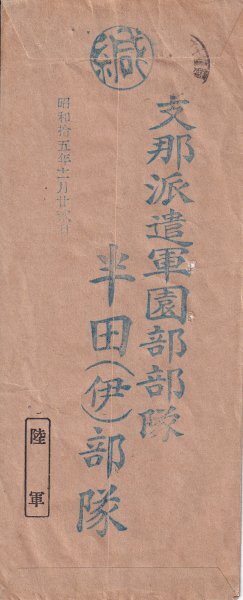 緘
支那派遣軍園部部隊
半田(伊)部隊
昭和拾五年十一月廿六日
陸軍